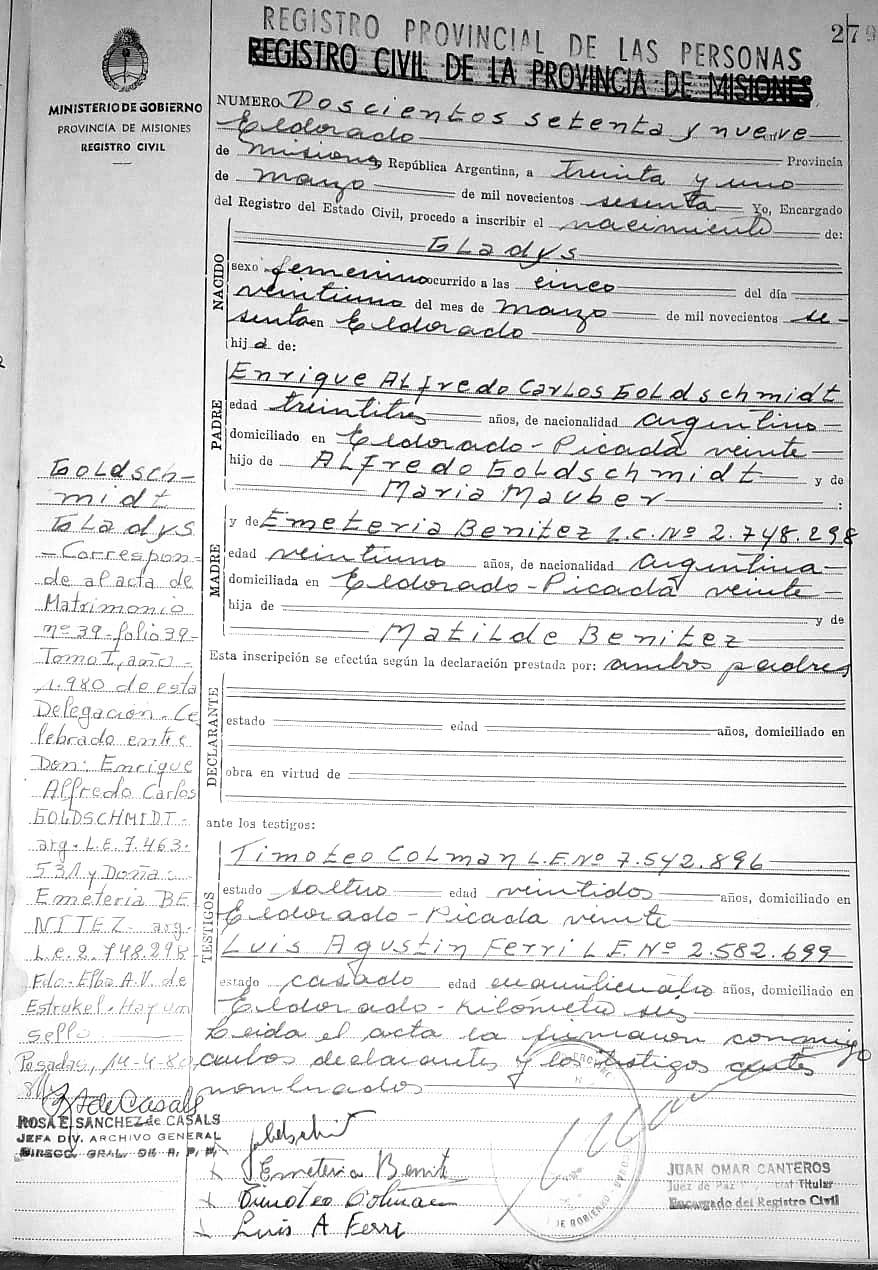 REGISTRO PROVINCIAL DE LAS PERSONAS
279
REGISTRO CIVIL DE LA PROVINCIA DE MISIONES
MINISTERIO DE GOBIERNO
PROVINCIA DE MISIONES
REGISTRO CIVIL
NUMERO Doscientos setenta y nueve en
Eldorado Provincia
de Misiones República Argentina, a treinta y uno
de marzo de mil novecientos sesenta Yo, Encargado
del Registro del Estado Civil, procedo a inscribir el nacimiento de:
NACIDO
Gladys
sexo femenino ocurrido a las cinco del día
veintiuno del mes de marzo de mil novecientos se-
senta en Eldorado
hija de:
PADRE
Enrique Alfredo Carlos Goldschmidt
edad treintitres años, de nacionalidad argentino
domiciliado en Eldorado-Picada veinte
hijo de Alfredo Goldschmidt y de
Maria Mauber :
MADRE
y de Emeteria Benitez L.C. Nº 2.748.298
edad veintiuno años, de nacionalidad argentina
domiciliada en Eldorado-Picada veinte
hija de y de
Matilde Benitez
Esta inscripción se efectúa según la declaración prestada por: ambos padres
DECLARANTE
estado edad años, domiciliado en
obra en virtud de
ante los testigos:
TESTIGOS
Timoteo Colman L.E. Nº 7.542.896
estado soltero edad veintidos años, domiciliado en
Eldorado-Picada veinte
Luis Agustin Ferri L.E. Nº 2.582.699
estado casado edad cuanticuatro años, domiciliado en
Eldorado-Kilómetro seis
Leida el acta la firmaron conmigo
ambos declarantes y los testigos antes
nombrados
Goldsch-
midt
Gladys
-Correspon-
de al acta de
Matrimonio
nº 39-folio 39-
Tomo I, año-
1.980 de esta
Delegación-Ce
lebrado entre
Don: Enrique
Alfredo Carlos
GOLDSCHMIDT-
arg-L.E.7.463.
531 y Doña:
Emeteria BE
NITEZ-arg-
L.C.2.748.298-
Fdo-Elba A.V. de
Estrukel-Hay un
sello
Posadas, 14-4-80
ROSA E. SANCHEZ de CASALS
JEFA DIV. ARCHIVO GENERAL
DIREC. GRAL. DE R. P. P.
Emeteria Benit
Timoteo Colman
Luis A Ferri
DE GOBIERNO
JUAN OMAR CANTEROS
Juez de Paz Titular
Encargado del Registro Civil